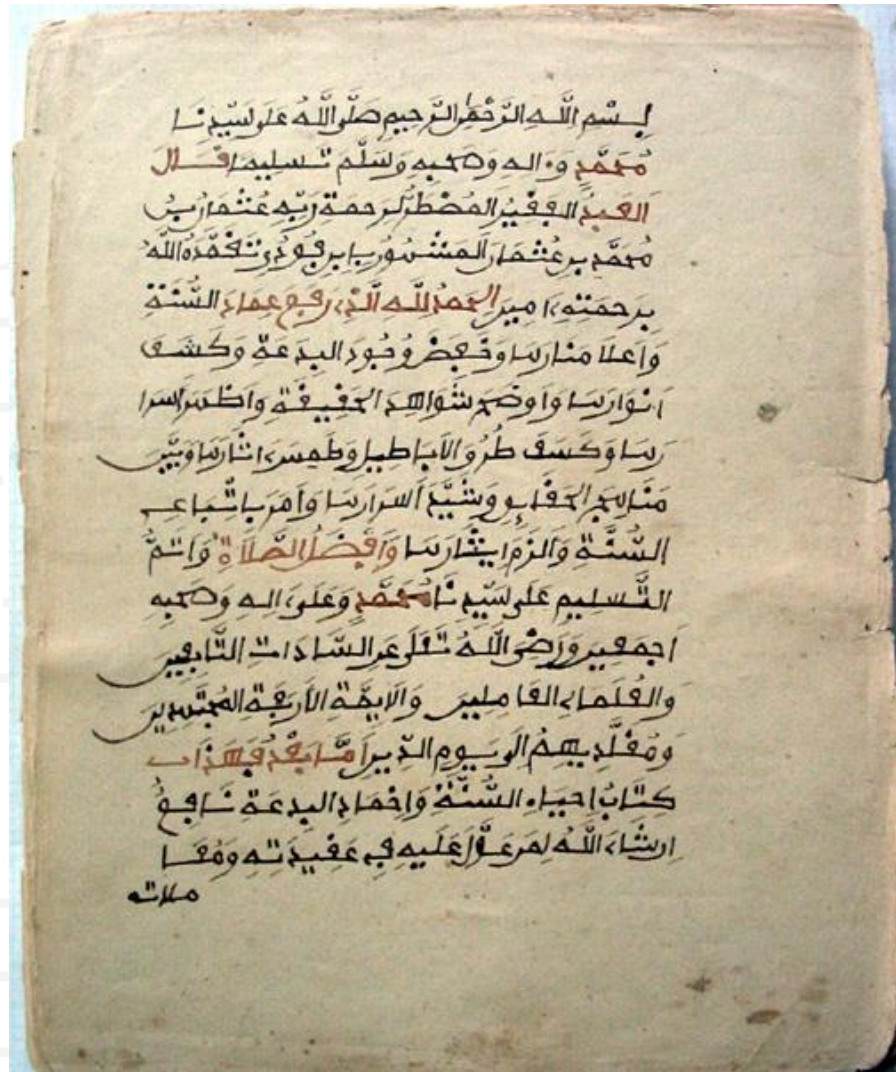 بِسْمِ اللَّهِ الرَّحْمَٰنِ الرَّحِيمِ صَلَّى اللَّهُ عَلَى سَيِّدِنَا
مُحَمَّدٍ وَءَالِهِ وَصَحْبِهِ وَسَلَّمَ تَسْلِيما قَالَ
العَبْدُ الفَقِيرُ المُضْطَرُّ لِرَحْمَةِ رَبِّهِ عُثْمَانُ بْنُ
مُحَمَّدِ بْنِ عُثْمَانَ المَشْهُورُ بِابْنِ فُودِي تَغَمَّدَهُ اللَّهُ
بِرَحْمَتِهِ ءَامِينَ الحَمْدُ لِلَّهِ الَّذِي رَفَعَ عِمَادَ السُّنَّةِ
وَأَعْلَا مَنَارَهَا وَخَفَضَ وُجُودَ البِدْعَةِ وَكَشَفَ
أَنْوَارَهَا وَأَوْضَحَ شَوَاهِدَ الحَقِيقَةِ وَأَظْهَرَ أَسْرَا
رَهَا وَكَسَفَ طُرُقَ الأَبَاطِيلِ وَطَمَسَ ءَاثَارَهَا وَبَيَّنَ
مَنَاهِجَ الحَقَائِقِ وَشَيَّدَ أَسْرَارَهَا وَأَمَرَ بِاتِّبَاعِ
السُّنَّةِ وَأَلْزَمَ إِيثَارَهَا وَأَفْضَلُ الصَّلَاةِ وَأَتَمُّ
التَّسْلِيمِ عَلَى سَيِّدِنَا مُحَمَّدٍ وَعَلَى ءَالِهِ وَصَحْبِهِ
أَجْمَعِينَ وَرَضِيَ اللَّهُ تَعَلَى عَنِ السَّادَاتِ التَّابِعِينَ
وَالعُلَمَاءِ العَامِلِينَ وَالأَيِمَّةِ الأَرْبَعَةِ المُجْتَهِدِينَ
وَمُقَلِّدِيهِمُ إِلَى يَوْمِ الدِّينِ أَمَّا بَعْدُ فَهَذَا
كِتَابُ إِحْيَاءِ السُّنَّةِ وَإِخْمَادِ البِدْعَةِ نَافِعُ
إِن شَاءَ اللَّهُ لِمَن عَوَّلَ عَلَيْهِ فِي عَقِيدَتِهِ وَمُعَا
ملاته